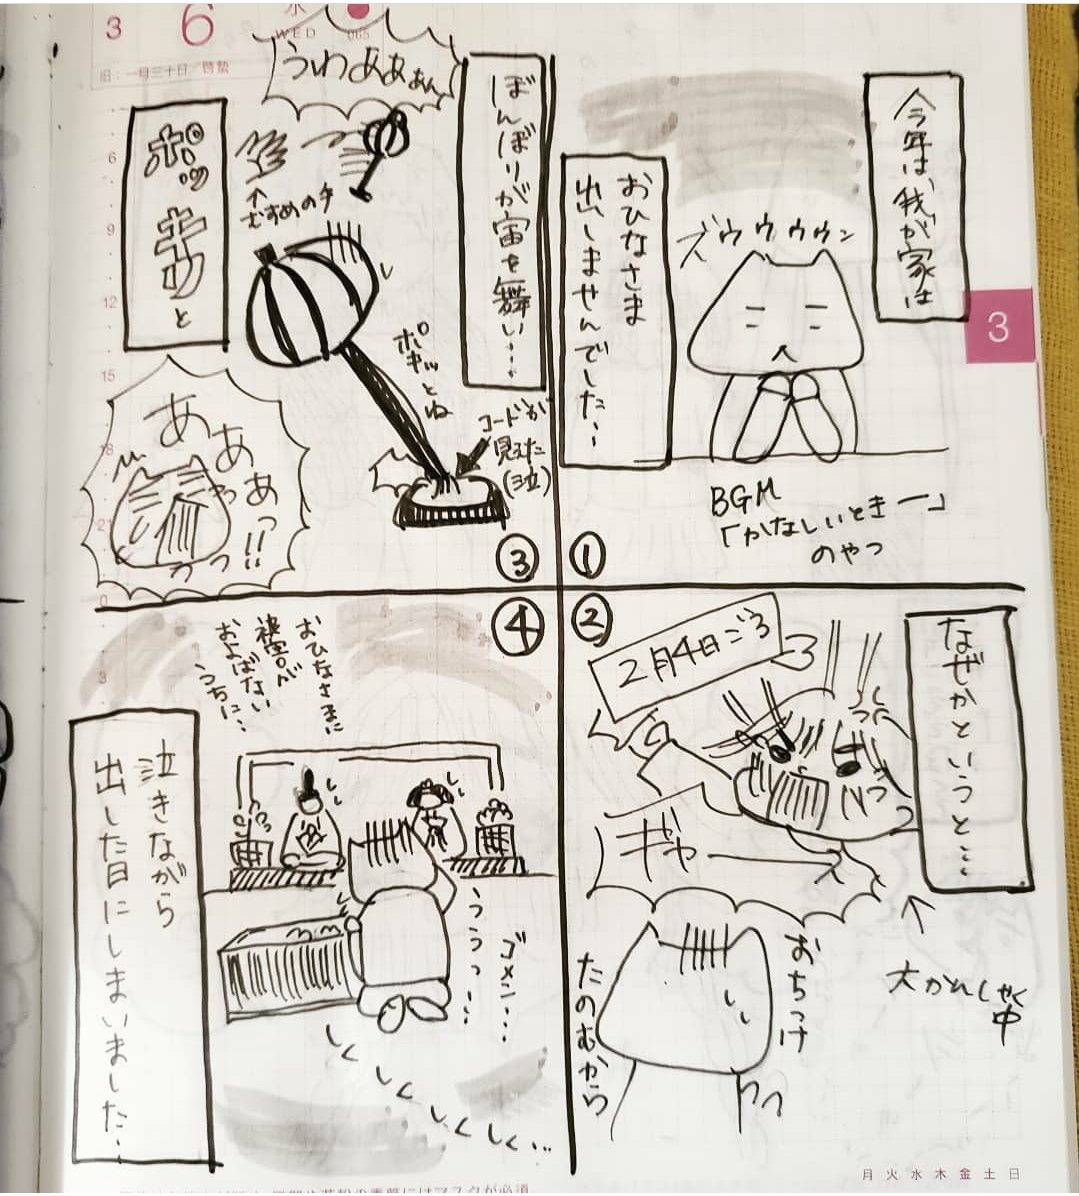 3
6
水
WED
065
旧：一月三十日／啓蟄
3
今年は、我が家は
おひなさま
出しませんでした…
ズウウウウン
BGM
「かなしいときー」
のやつ
①
②
なぜかというと…
2月4日ごろ
ギャー
↑
大かんしゃく
中
おちつけ
たのむから
③
ぼんぼりが宙を舞い…
うわああぁん
↑
むすめの手
ポッキリと
ポキッとね
コードが
見えた
(泣)
ああぁあっ!!
④
おひなさまに
被害が
およばない
うちに…
ううっ…
ゴメン…
泣きながら
出した日にしまいました…
6
9
12
15
18
21
0
3
月 火 水 木 金 土 日